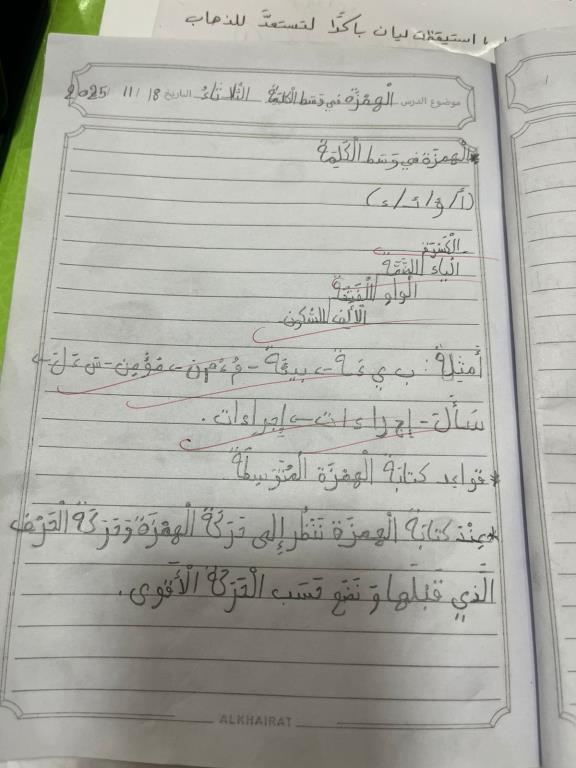 استيقظت ليان باكرًا لتستعدَّ للذهاب
موضوع الدرس الْهمْزَة في وَسَط الْكَلِمَة الثّلاثاءُ التاريخ 18/ 11/ 2025
*الْهمزَة في وَسَط الْكَلِمَة
(أ/ ؤ/ ئـ/ ء)
الْكَسْرَة
الْياء الضَّمَّة
الْواو الْفَتْحَة
الْألِف السُّكون
أَمثِلَة : ب ي ءَ ة ← بيئَة - مُ ءْ مِ ن ← مُؤْمِن - سَ ءَ لَ ←
سَأَلَ - إج ر ا ء ا ت ← إجراءات .
* قواعِد كتابَة الْهمْزَة الْمُتَوَسِّطَة
*عِنْدَ كتابَة الْهمزَة نَنْظُر إلى حَرَكَة الْهمْزَة وَحَرَكَة الْحَرْف
الَّذي قَبْلَها وَ نَضَع حَسَب الْحَرَكَة الْأَقْوى .
ALKHAIRAT